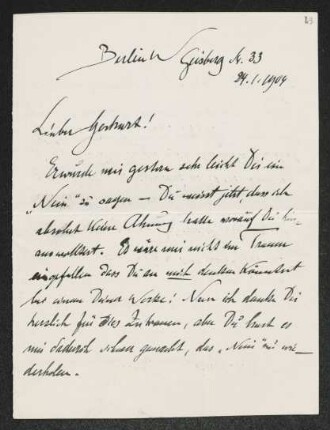 Berlin W Geisberg St. 33
24.1.1904
Lieber Gerhart!
Es wurde mir gestern sehr leicht Dir ein
„Nein" zu sagen — Du weisst jetzt, dass ich
absolut keine Ahnung hatte worauf Du hin-
aus wolltest. Es wäre mir nicht im Traum
eingefallen dass Du an mich denken könntest
bei einem Deiner Werke! Nun ich danke Dir
herzlich für Dies Zutrauen, aber Du hast es
mir dadurch schwer gemacht, das „Nein" zu wie-
derholen.